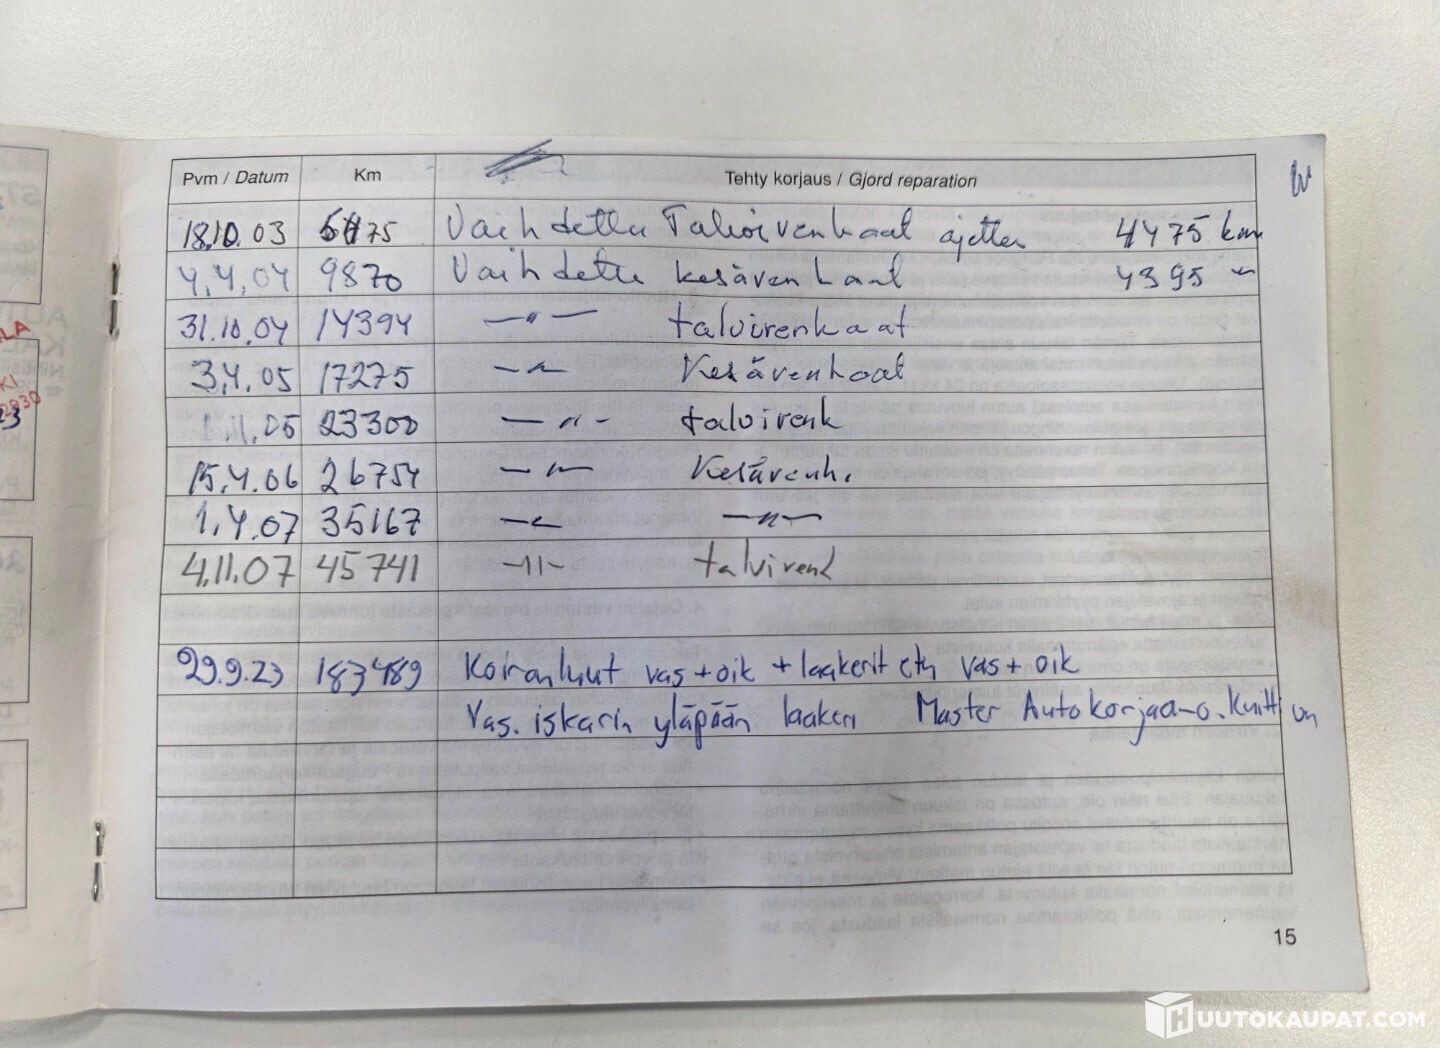 Pvm / Datum Km Tehty korjaus / Gjord reparation
18.10.03 5475 Vaihdettu Talvirenkaat ajettu 4475 km
4.4.04 9870 Vaihdettu kesärenkaat 4395 "
31.10.04 14394 — " — talvirenkaat
3.4.05 17275 — " — Kesärenkaat
1.11.05 23300 — " — talvirenk
15.4.06 26754 — " — Kesärenk.
1.4.07 35167 — " — — " —
4.11.07 45741 — " — talvirenk
29.9.23 183489 Koiranluut vas+oik + laakerit etu vas+oik
Vas. iskarin yläpään laakeri Master Autokorjaamo. Kuitti on
15
HUUTOKAUPAT.COM